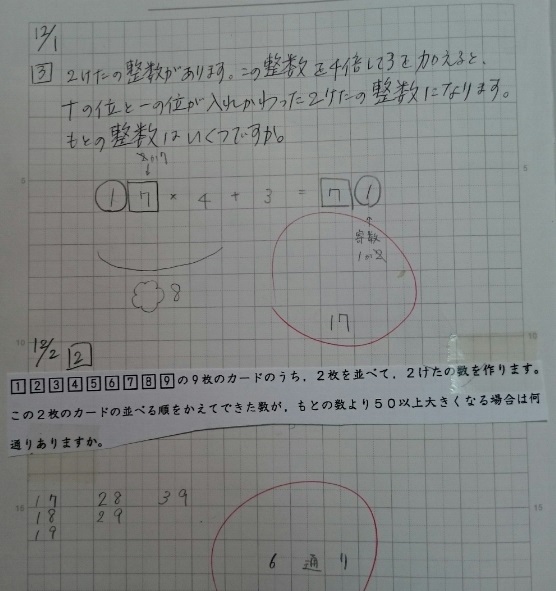 12/1
3 2けたの整数があります。この整数を4倍して3を加えると、
十の位と一の位が入れかわった2けたの整数になります。
もとの整数はいくつですか。
2か7
↓
1 7 × 4 + 3 = 7 1
↑
奇数
1か
8
17
12/2 2
1 2 3 4 5 6 7 8 9 の9枚のカードのうち，2枚を並べて，2けたの数を作ります。
この2枚のカードの並べる順をかえてできた数が，もとの数より50以上大きくなる場合は何
通りありますか。
17 28 39
18 29
19
6 通り